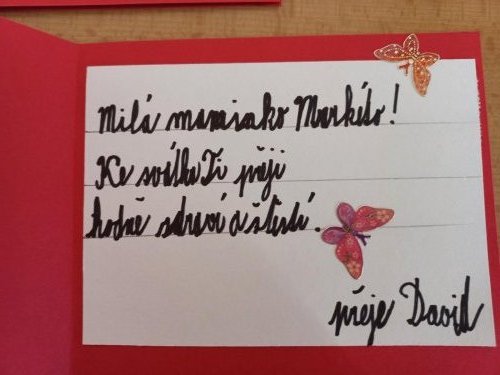 Milá maminko Markéto!
Ke svátku Ti přeji
hodně zdraví a štěstí.
přeje David